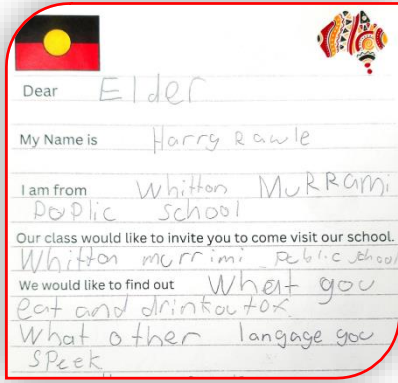 Dear Elder
My Name is Harry Rawle
I am from Whitton MuRRami
poplic school
Our class would like to invite you to come visit our school.
Whitton murrimi public school
We would like to find out What you
eat and drink
What other langage you
speek